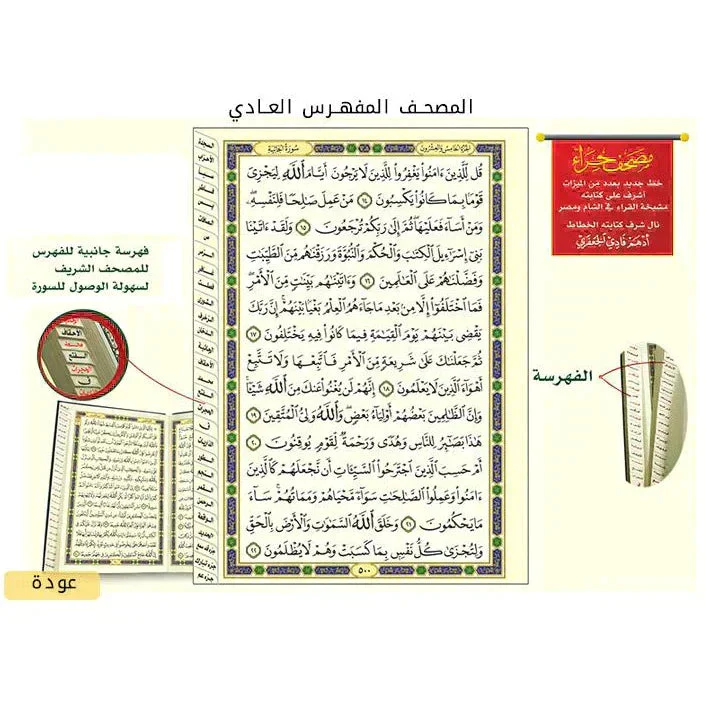 المصحف المفهرس العادي
سورة الجاثية
الجزء الخامس والعشرون
قُل لِّلَّذِينَ ءَامَنُوا۟ يَغْفِرُوا۟ لِلَّذِينَ لَا يَرْجُونَ أَيَّامَ ٱللَّهِ لِيَجْزِىَ
قَوْمًۢا بِمَا كَانُوا۟ يَكْسِبُونَ ١٤ مَنْ عَمِلَ صَٰلِحًا فَلِنَفْسِهِۦ
وَمَنْ أَسَآءَ فَعَلَيْهَا ثُمَّ إِلَىٰ رَبِّكُمْ تُرْجَعُونَ ١٥ وَلَقَدْ ءَاتَيْنَا
بَنِىٓ إِسْرَٰٓءِيلَ ٱلْكِتَٰبَ وَٱلْحُكْمَ وَٱلنُّبُوَّةَ وَرَزَقْنَٰهُم مِّنَ ٱلطَّيِّبَٰتِ
وَفَضَّلْنَٰهُمْ عَلَى ٱلْعَٰلَمِينَ ١٦ وَءَاتَيْنَٰهُم بَيِّنَٰتٍ مِّنَ ٱلْأَمْرِ
فَمَا ٱخْتَلَفُوٓا۟ إِلَّا مِنۢ بَعْدِ مَا جَآءَهُمُ ٱلْعِلْمُ بَغْيًۢا بَيْنَهُمْ إِنَّ رَبَّكَ
يَقْضِى بَيْنَهُمْ يَوْمَ ٱلْقِيَٰمَةِ فِيمَا كَانُوا۟ فِيهِ يَخْتَلِفُونَ ١٧
ثُمَّ جَعَلْنَٰكَ عَلَىٰ شَرِيعَةٍ مِّنَ ٱلْأَمْرِ فَٱتَّبِعْهَا وَلَا تَتَّبِعْ
أَهْوَآءَ ٱلَّذِينَ لَا يَعْلَمُونَ ١٨ إِنَّهُمْ لَن يُغْنُوا۟ عَنكَ مِنَ ٱللَّهِ شَيْـًٔا
وَإِنَّ ٱلظَّٰلِمِينَ بَعْضُهُمْ أَوْلِيَآءُ بَعْضٍ وَٱللَّهُ وَلِىُّ ٱلْمُتَّقِينَ ١٩
هَٰذَا بَصَٰٓئِرُ لِلنَّاسِ وَهُدًى وَرَحْمَةٌ لِّقَوْمٍ يُوقِنُونَ ٢٠
أَمْ حَسِبَ ٱلَّذِينَ ٱجْتَرَحُوا۟ ٱلسَّيِّـَٔاتِ أَن نَّجْعَلَهُمْ كَٱلَّذِينَ
ءَامَنُوا۟ وَعَمِلُوا۟ ٱلصَّٰلِحَٰتِ سَوَآءً مَّحْيَاهُمْ وَمَمَاتُهُمْ سَآءَ
مَا يَحْكُمُونَ ٢١ وَخَلَقَ ٱللَّهُ ٱلسَّمَٰوَٰتِ وَٱلْأَرْضَ بِٱلْحَقِّ
وَلِتُجْزَىٰ كُلُّ نَفْسٍۭ بِمَا كَسَبَتْ وَهُمْ لَا يُظْلَمُونَ ٢٢
٥٠٠
مصحف حراء
خط جديد بعدد من الميزات
أشرف على كتابته
مشيخة القراء في الشام ومصر
نال شرف كتابته الخطاط
أدهم فادي الجعفري
الفهرسة
فهرسة جانبية للفهرس
للمصحف الشريف
لسهولة الوصول للسورة
السجدة
الأحزاب
سبأ
فاطر
يس
الصافات
ص
الزمر
غافر
فصلت
الشورى
الزخرف
الدخان
الجاثية
الأحقاف
محمد
الفتح
الحجرات
ق
الذاريات
الطور
النجم
القمر
الرحمن
الواقعة
الحديد
جزء قد سمع
جزء تبارك
جزء عم
الأحقاف
محمد
الفتح
الحجرات
ق
عودة